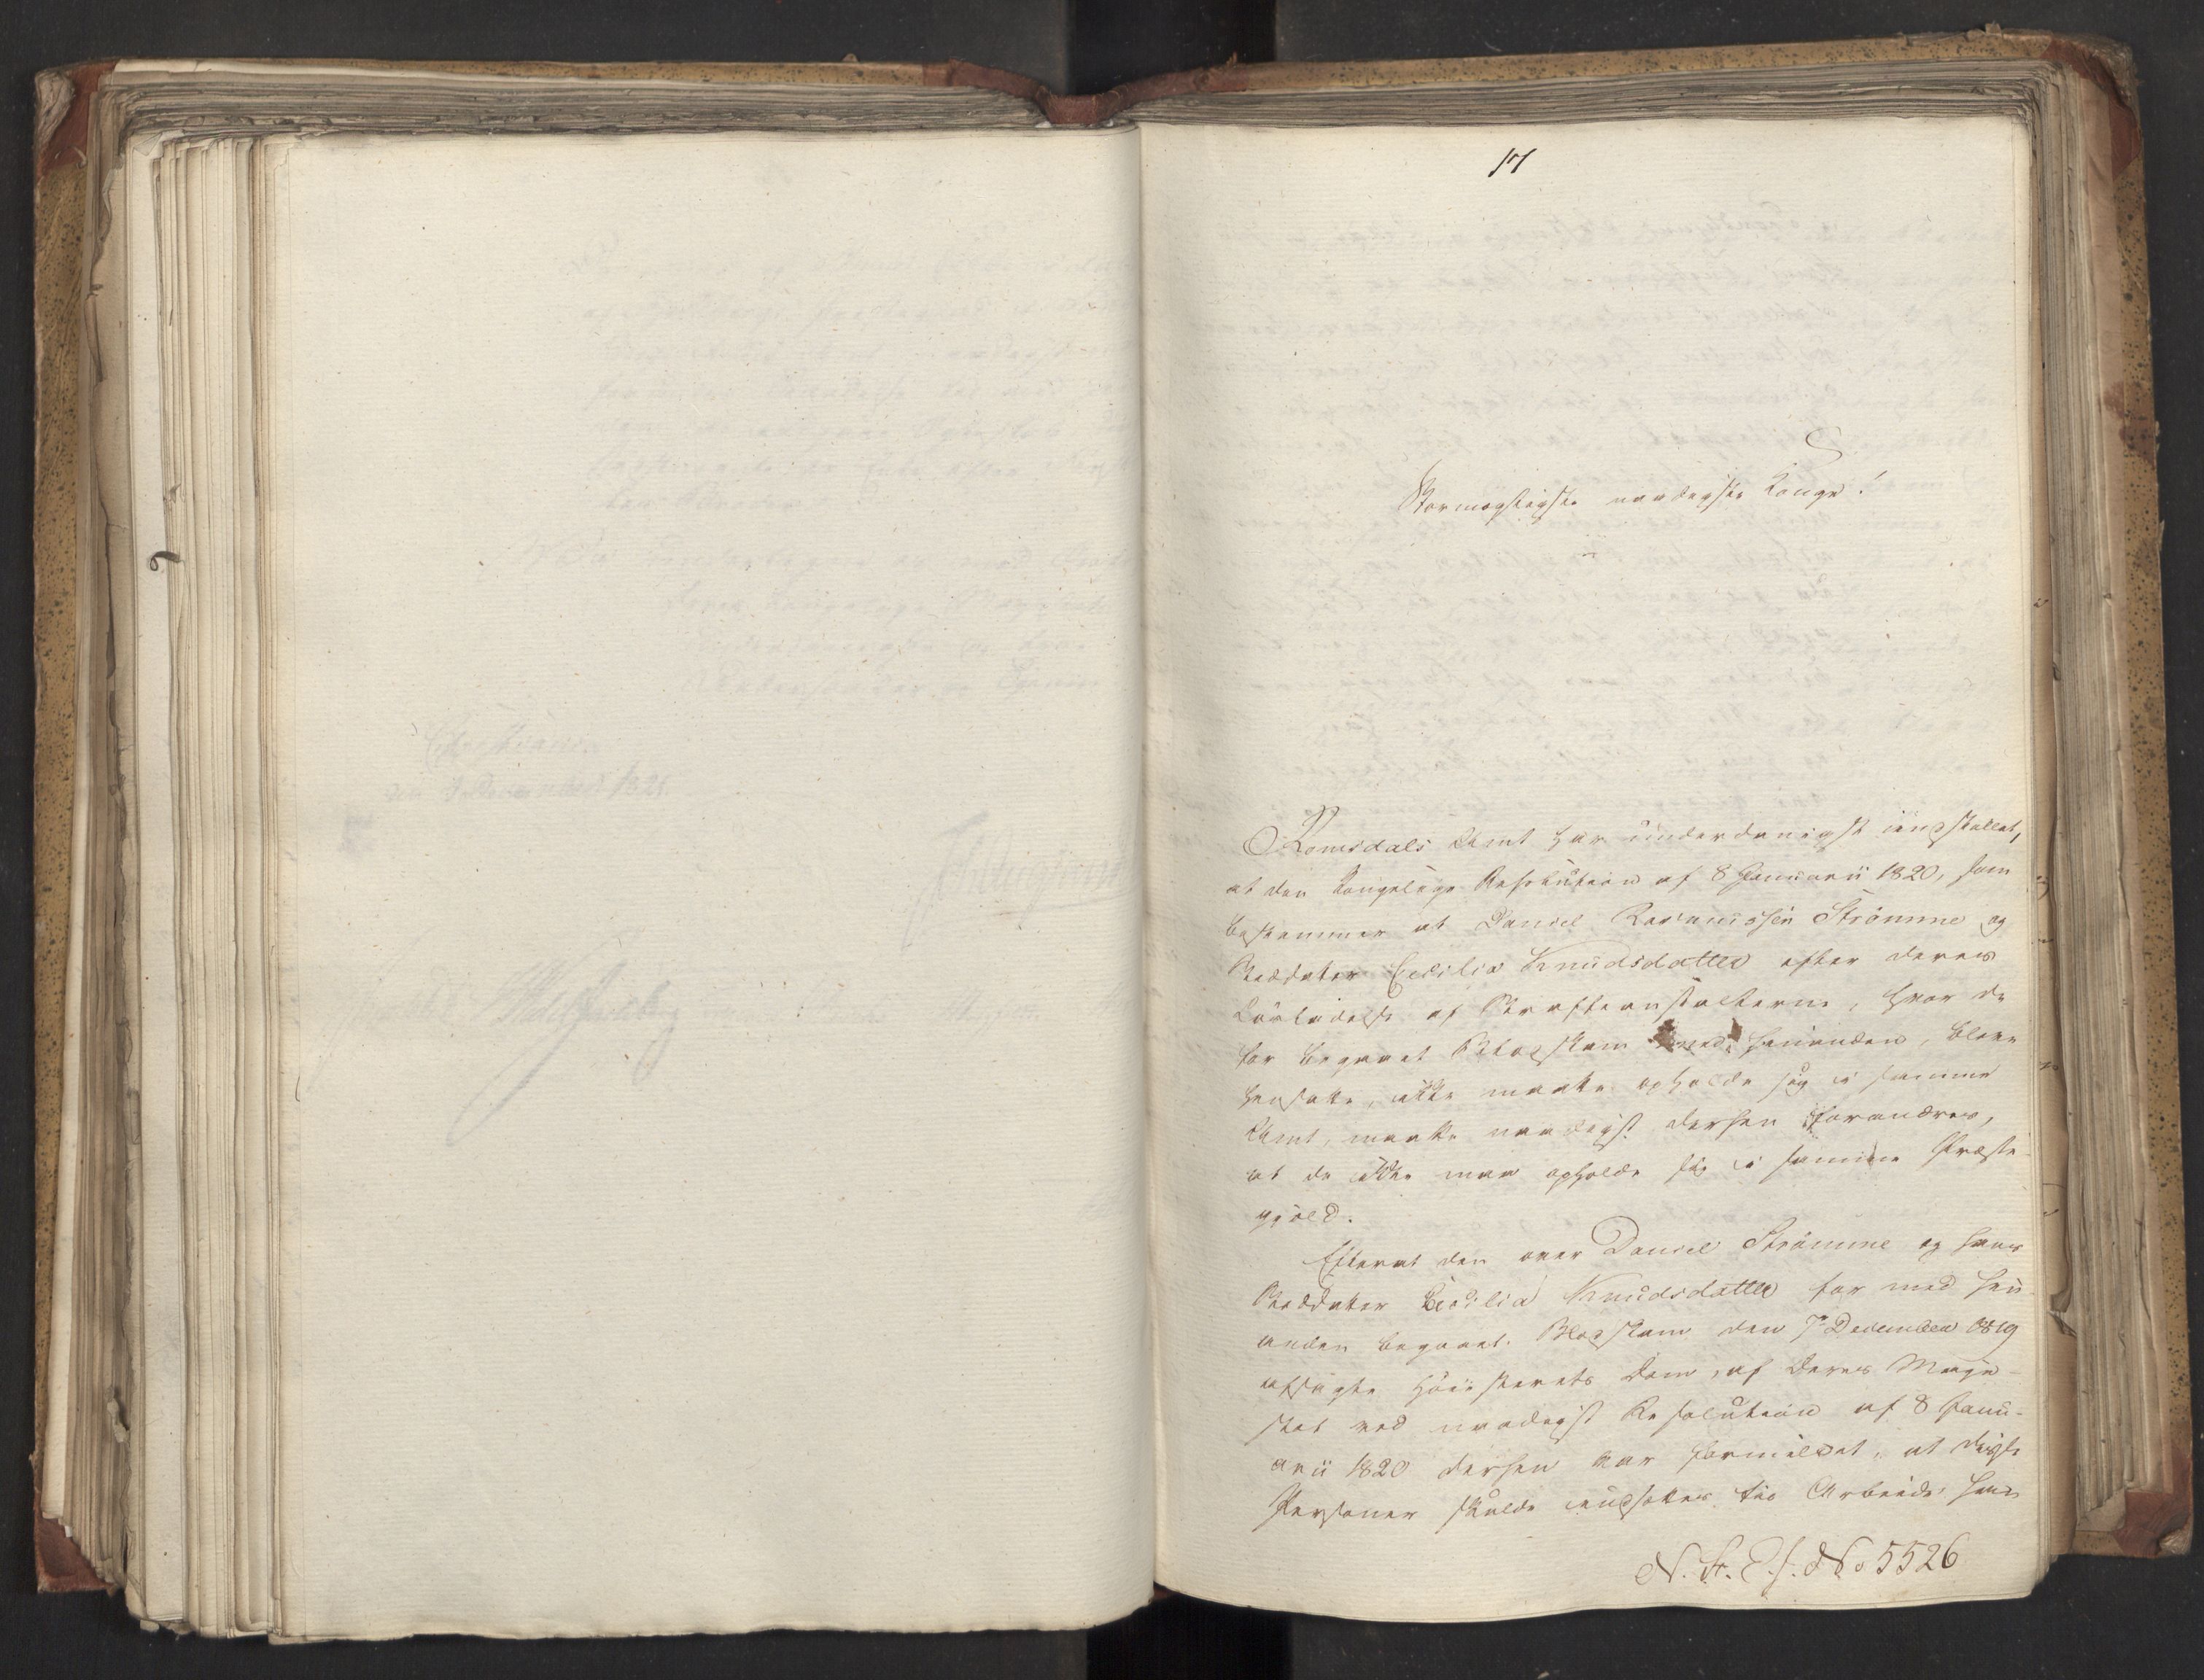 17
Stormægtigste naadigste Konge!
Romsdals Amt har underdanigst indstillet,
at den Kongelige Resolution af 8 Januarii 1820, som
bestemmer at Daniel Rasmussen Strømme og
Steddatter Cecilia Knudsdatter efter deres
Løsladelse af Strafanstalterne, hvor de
for begaaet Blodskam med hinanden, bleve
hensatte, ikke maatte opholde sig i samme
Amt, maatte naadigst derhen forandres,
at de ikke maa opholde sig i samme Præste-
gjeld.
Efterat den over Daniel Strømme og hans
Steddatter Cecilia Knudsdatter for med hin-
anden begaaet Blodskam den 7 December 1819
afsagte Høiesterets Dom, af Deres Maje-
stæt ved naadigst Resolution af 8 Janu-
arii 1820 derhen var formildet, at disse
Personer skulde indsættes til Arbeide, han
N. St. E. f. No 5526